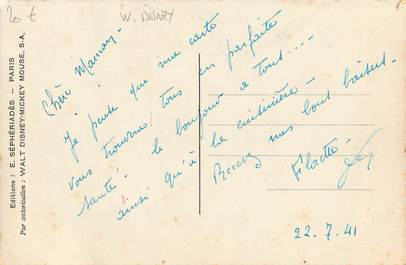 20 €
W. DISNEY
Editions : E. SÉPHÉRIADÈS — PARIS
Par autorisation : WALT DISNEY-MICKEY MOUSE, S.A.
Chère Maman -
Je pense que ma carte
vous trouvera tous en parfaite
santé - le bonjour à tout ...
ainsi qu'à la cuisinière -
Recevez mes bons baisers.
Florette -
22.7.41